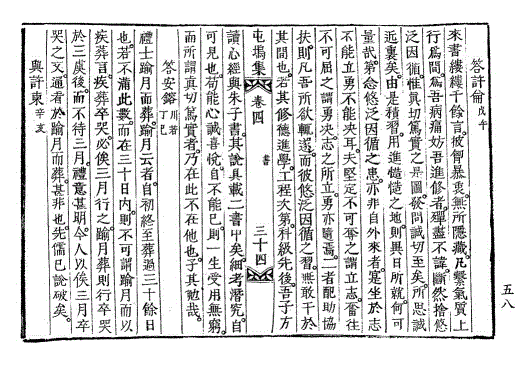 答許侖 戊午
來書縷縷千餘言。彼卽暴衷。無所隱藏。凡繫氣質上
行爲間。爲吾病痛妨吾進修者。殫盡不諱。斷然捨悠
泛因循。惟眞切篤實之是圖。發問誠切至矣。所思誠
近裏矣。由是積習用進慥慥之地。則異日所就。何可
量哉。第念悠泛因循之患。亦非自外來者。寔坐於志
不能立。勇不能夬耳。夫堅定不可辱之謂立志。奮往
不可屈之謂勇夬。志之所立。勇亦隨焉。二者配助協
扶。則凡吾所欲輒遂。而彼悠泛因循之習。無敢干於
其間也。若其修德進學。工程次第。科級先後。吾子方
屯塢集 卷四 書 三十四
讀心經與朱子書。其說具載二書中矣。細考潛究。自
可見也。苟能心誠喜悅。自不能已。則一生受用無窮。
而所謂眞切篤實者。乃在此不在他也。子其勉哉。
答安鎔 川若 丁巳
禮士踰月而葬。踰月云者。自初終至葬。過三十餘日
也。若不滿此數。而在三十日內。則不可謂踰月而以
疾葬言。疾葬卒哭。必俟三月。行之踰月葬則行卒哭
於三虞後。而不待三月。禮意甚明。今人以俟三月卒
哭之文。通看於踰月而葬。甚非也。先儒已說破矣。
與許東 辛亥
五八